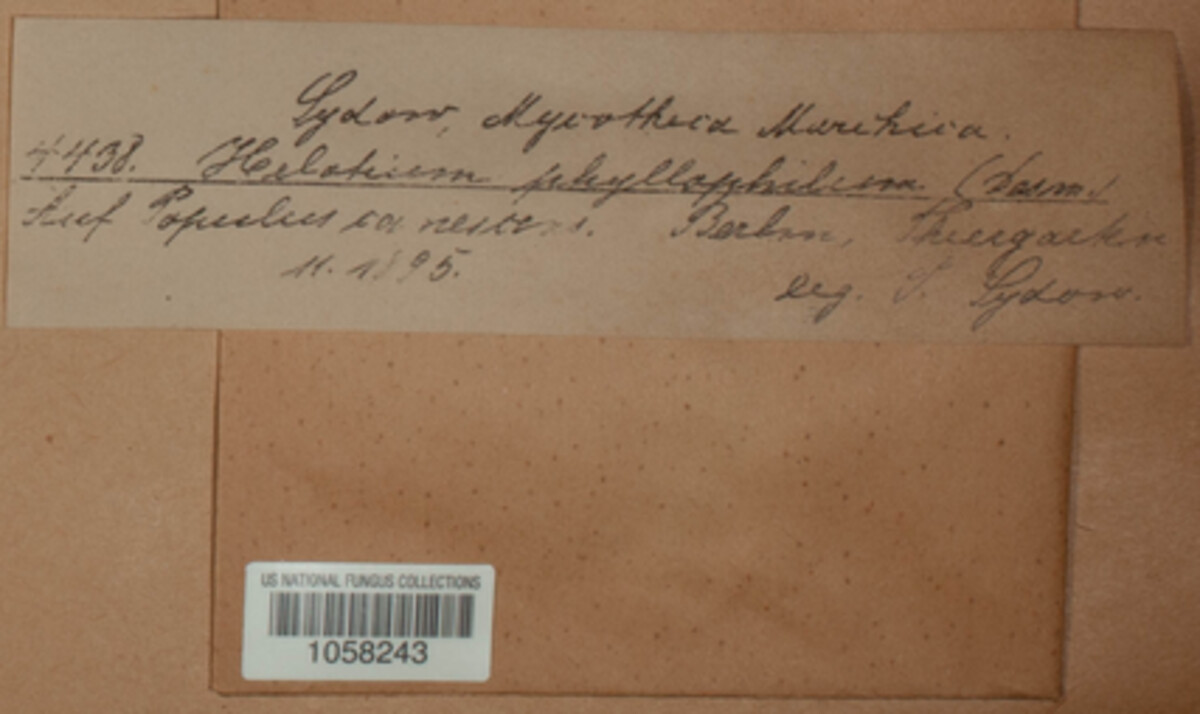 Sydow, Mycotheca Marchica.
4438. Helotium phyllophilum (Desm.)
Auf Populus canescens. Berlin, Thiergarten
11. 1895.
leg. P. Sydow.
US NATIONAL FUNGUS COLLECTIONS
1058243